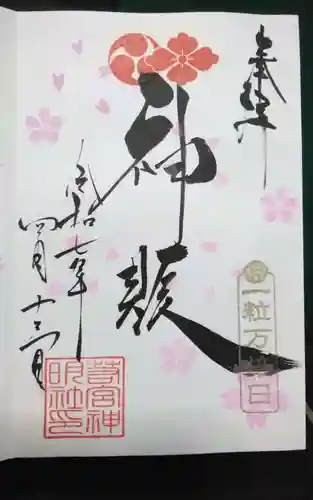 奉拝
神
一粒万倍日
令和七年
四月十三日
若宮神
明社印